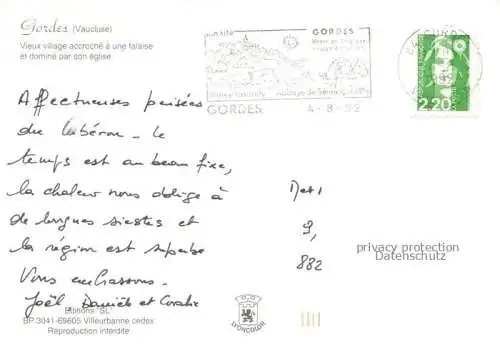 Gordes (Vaucluse)
Vieux village accroché à une falaise
et dominé par son église
GORDES
GORDES
4-8-92
2,20
Affectueuses pensées
du Lubéron. Le
temps est au beau fixe,
la chaleur nous oblige à
de longues siestes et
la région est superbe
Vous embrassons.
Joël Danièle et Coralie
Des 1
9,
882
privacy protection
Datenschutz
Editions "SL"
BP 3041-69605 Villeurbanne cedex
Réproduction interdite
LYONCOLOR